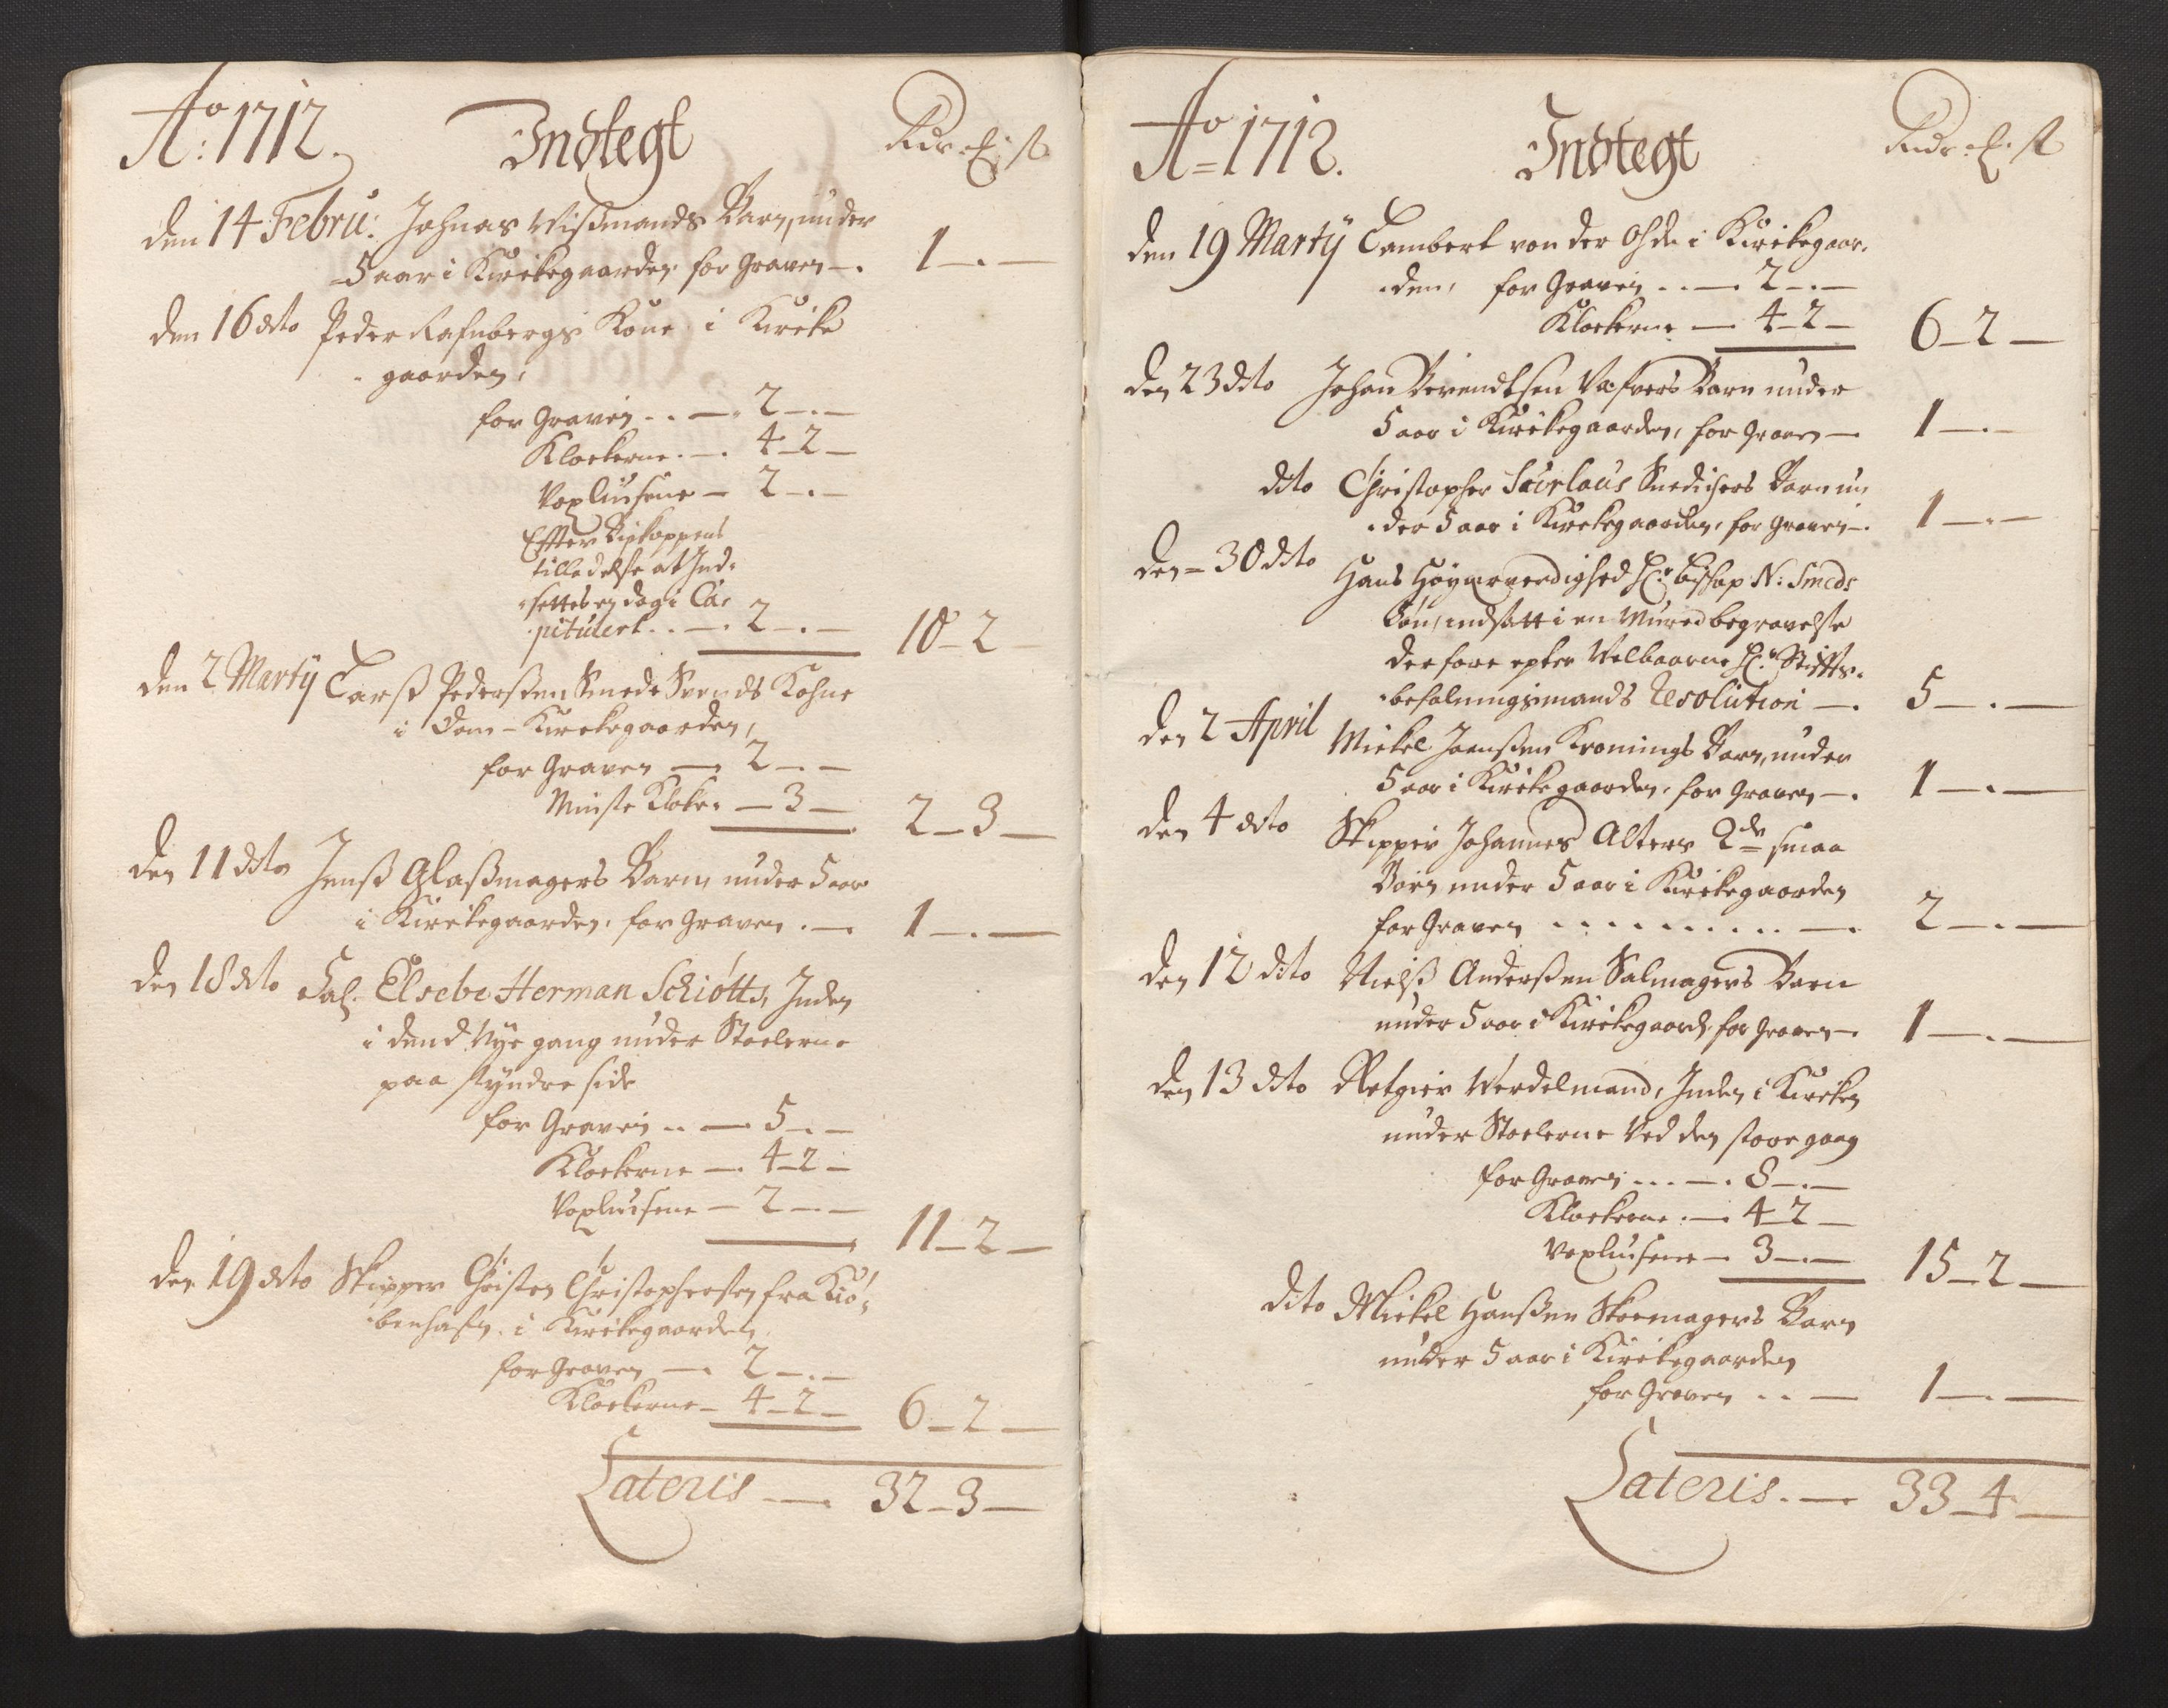 Ao: 1712. Indtegt Rdr. [?] s
den 14 Febru: Johnas Wissmands Barn, under
5 aar i Kirckegaarden, for Graven —. 1 —.—
den 16 dito Peder Rafnbergs Kone i Kircke
gaarden,
for Graven .. —. 2 —.—
Klockerne. —. 4 – 2 —
Voxliusene — 2 —.—
Effter Biskoppens
tilladelse at Ind-
settes en dag i Ca-
pitulert .. —. 2 —.— 10 – 2
den 2 Martÿ Larss Pederssen Smede Svends Kohne
i Dom-Kirckegaarden,
for Graven —. 2 —.—
Minste Klocke. — 3 — 2 – 3 —
den 11 dito Jenss Glassmagers Barn, under 5 aar
i Kirckegaarden, for Graven . — 1 —.—
den 18 dito Sal. Elsebe Herman Schiøtts, Inden
i dend Nye gang under Stoelerne
paa syndre side
for Graven .. —. 5 —.—
Klockerne —. 4 – 2 —
Voxliusene — 2 —.— 11 – 2 —
den 19 dito Skipper Christen Christophersen fra Kiø-
benhafn, i Kirckegaarden,
for Graven —. 2 —.—
Klockerne — 4 – 2 — 6 – 2 —
Lateris —. 32 – 3 —
Ao = 1712. Indtegt Rdr. s
den 19 Martÿ Lambert von der Ohde i Kirckegaar-
den, for Graven .. —. 2 —.—
Klockerne — 4 – 2 — 6 – 2 —
den 23 dito Johan Berendtsen Væfvers Barn under
5 aar i Kirckegaarden, for Graven — 1 —.—
dito Christopher Snedichers Barn un
der 5 aar i Kirckegaarden, for Graven —. 1 —.—
den = 30 dito Hans Høyærverdighed Hr. Bishop N: Smeds
Søn, indsatt i en Mured begravelse
derfore epter Velbaarne Hr. Stiffts-
befalningsmands Resolution —. 5 —.—
den 2 April Mickel Jonssen Kronings Barn, under
5 aar i Kirckegaarden, for Graven —. 1 —.—
den 4 dito Skipper Johannes Alters 2de smaa
Børn under 5 aar i Kirckegaarden
for Graven . . . . . . . . . —. 2 —.—
den 12 dito Nielss Anderssen Salmagers Barn
under 5 aar i Kirckegaard, for Graven — 1 —.—
den 13 dito Retgier Werdelmand, Inden i Kircken
under Stoelerne Ved den store gang
for Graven ... —. 8 —.—
Klockerne. —. 4 – 2 —
Voxliusene — 3 —.— 15 – 2 —
dito Mickel Hanssen Skoemagers Barn
under 5 aar i Kirckegaarden
for Graven .. — 1 —.—
Lateris. — 33 – 4 —